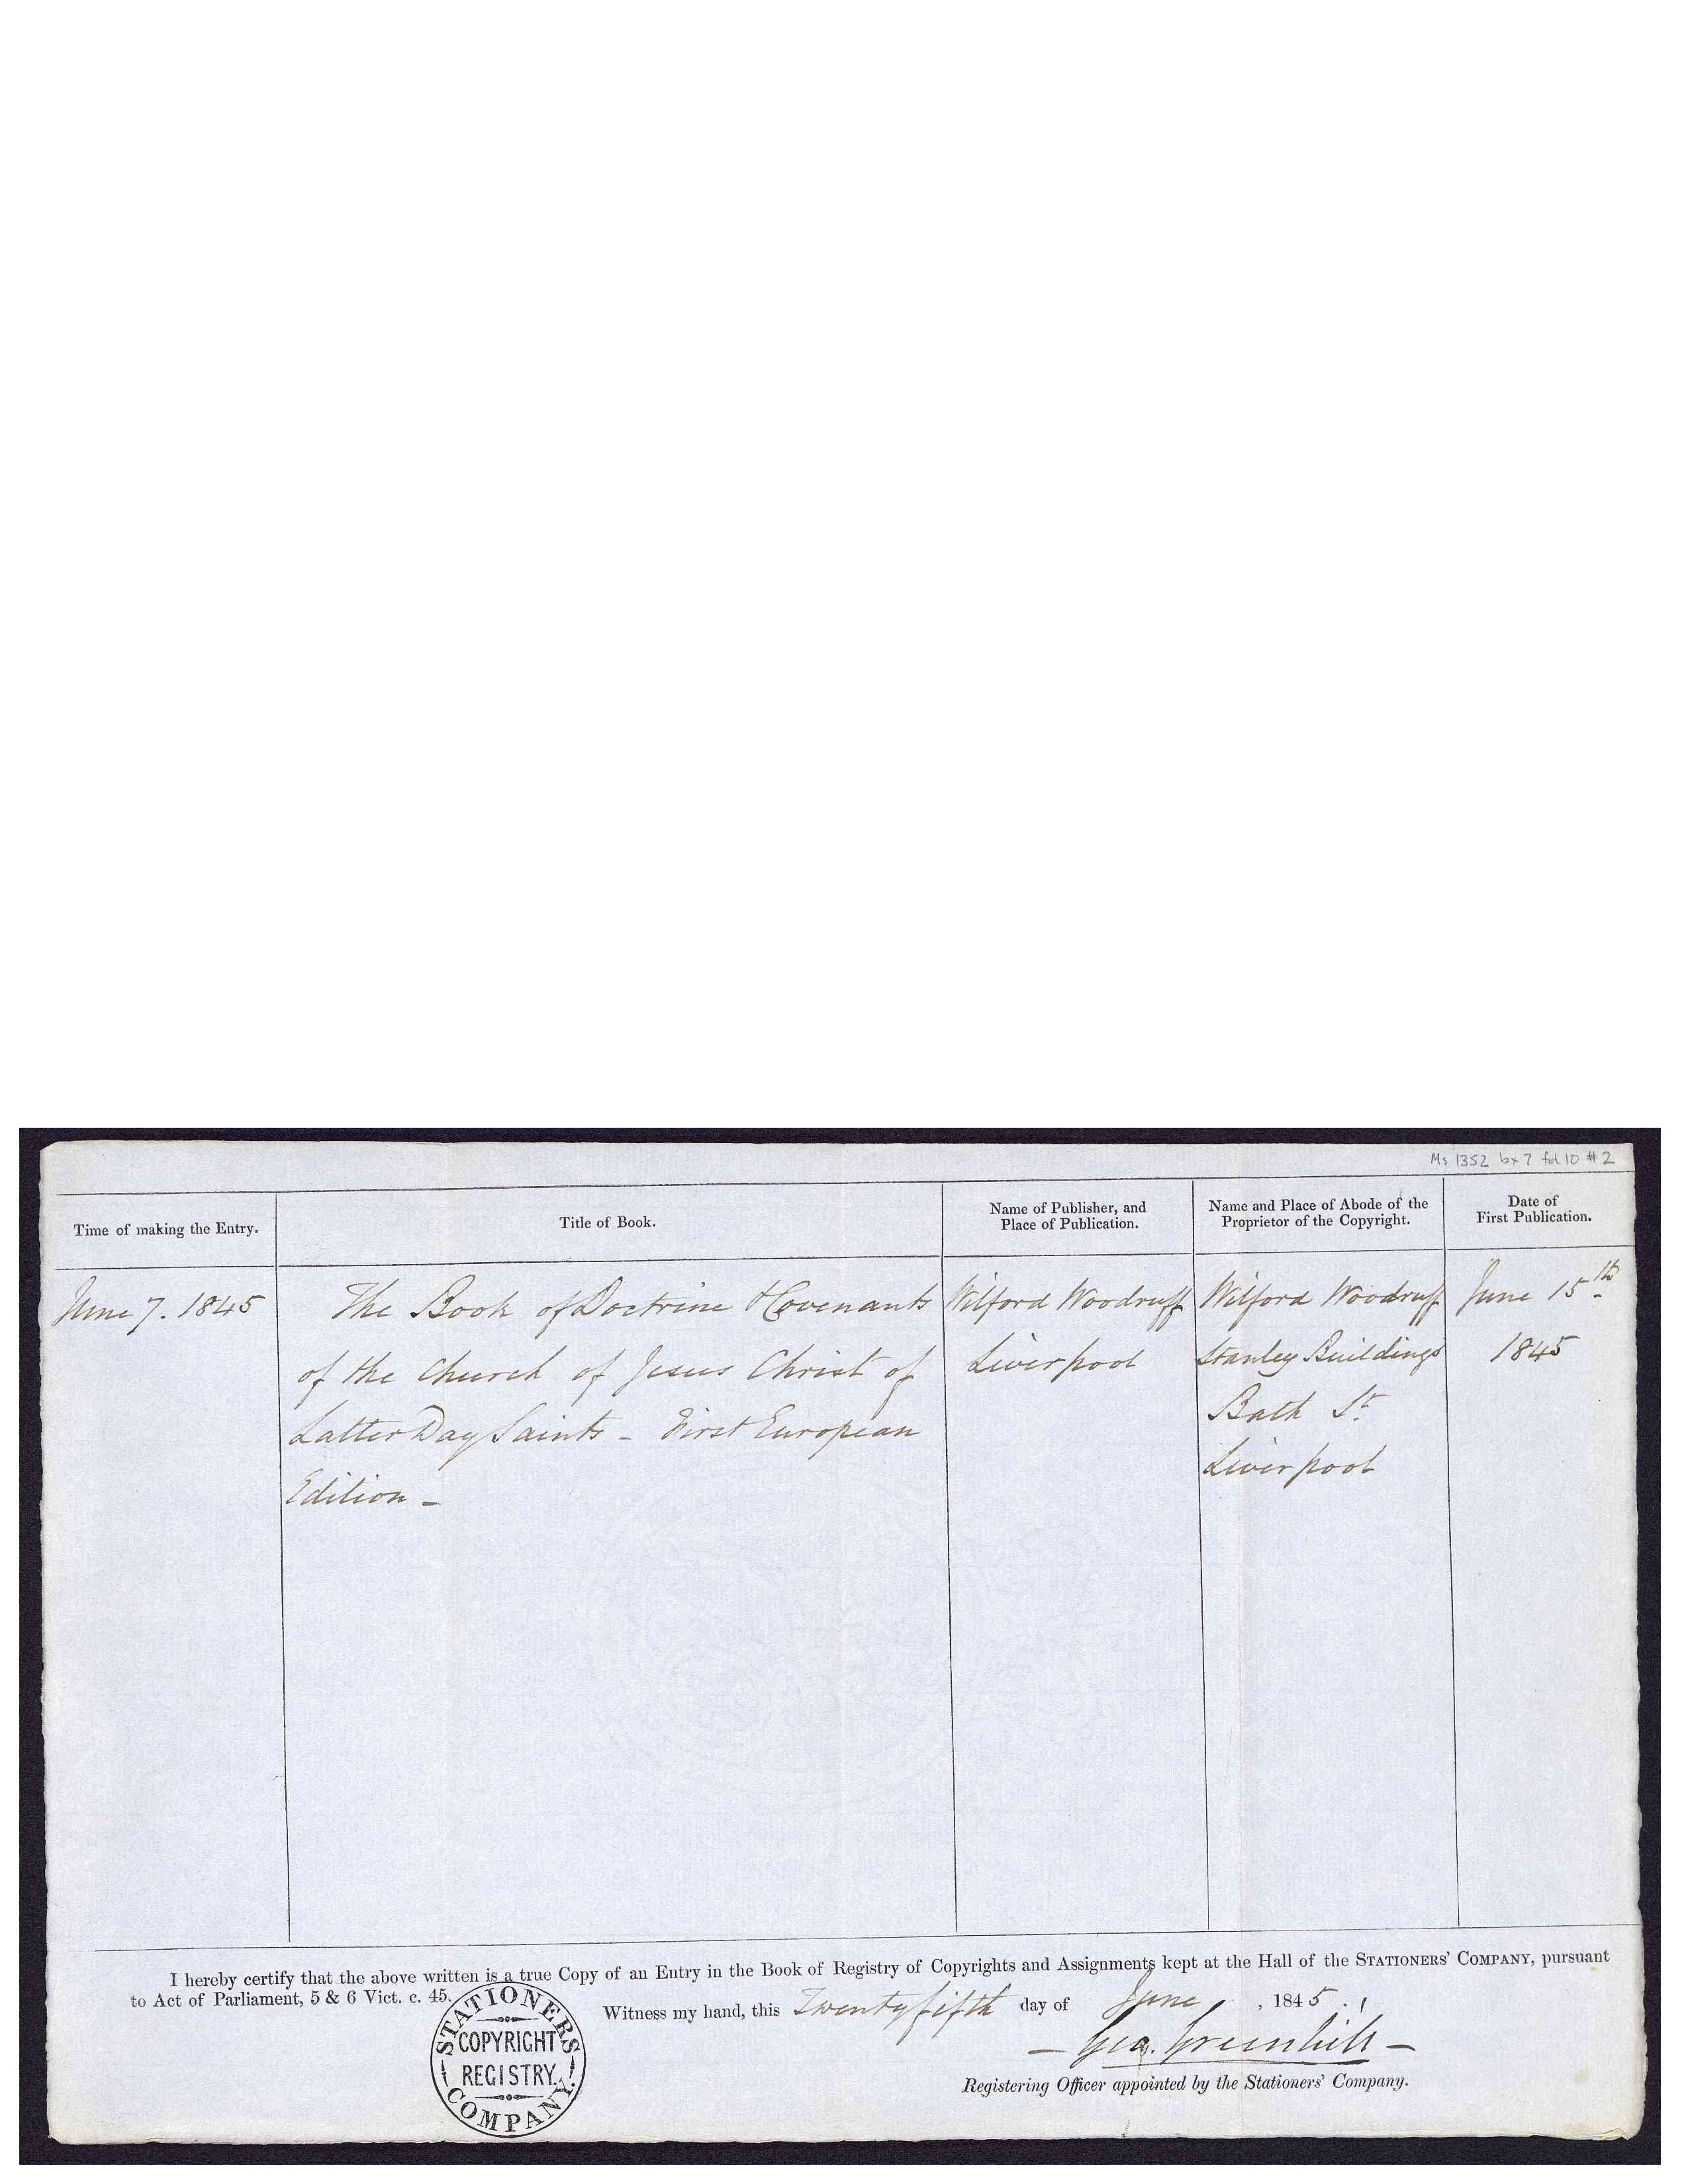 Ms 1352 bx 7 fd 10 #2
Time of making the Entry.
Title of Book.
Name of Publisher, and
Place of Publication.
Name and Place of Abode of the
Proprietor of the Copyright.
Date of
First Publication.
June 7. 1845
The Book of Doctrine & Covenants
of the Church of Jesus Christ of
Latter Day Saints - First European
Edition -
Wilford Woodruff
Liverpool
Wilford Woodruff
Stanley Buildings
Bath St.
Liverpool
June 15th
1845
I hereby certify that the above written is a true Copy of an Entry in the Book of Registry of Copyrights and Assignments kept at the Hall of the STATIONERS' COMPANY, pursuant
to Act of Parliament, 5 & 6 Vict. c. 45.
Witness my hand, this Twentyfifth day of June, 1845.
- Geo. Greenhill -
Registering Officer appointed by the Stationers' Company.
STATIONERS
COPYRIGHT
REGISTRY.
COMPANY